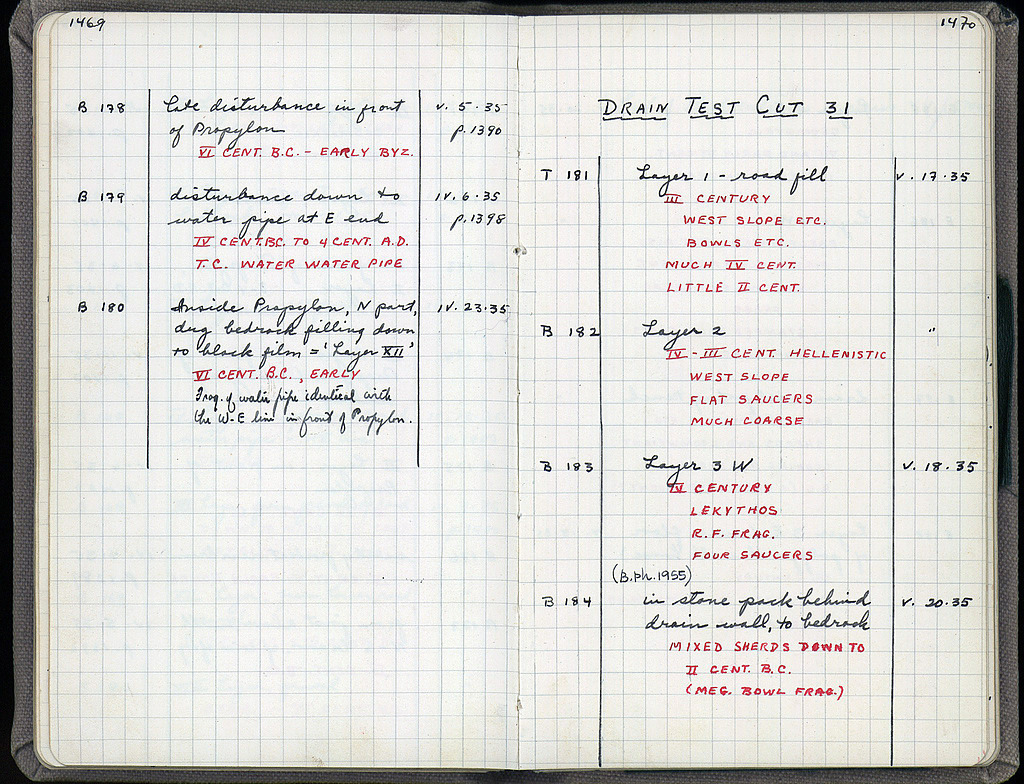 1469
B 178 late disturbance in front V. 5.35
of Propylon p.1390
VI CENT. B.C. - EARLY BYZ.
B 179 disturbance down to IV. 6.35
water pipe at E end p.1398
IV CENT.B.C. TO 4 CENT. A.D.
T.C. WATER WATER PIPE
B 180 Inside Propylon, N part, IV. 23.35
dug bedrock filling down
to black film = 'Layer XII'
VI CENT. B.C., EARLY
Frag. of water pipe identical with
the W-E line in front of Propylon.
1470
DRAIN TEST CUT 31
T 181 Layer 1 - road fill V. 17.35
III CENTURY
WEST SLOPE ETC.
BOWLS ETC.
MUCH IV CENT.
LITTLE II CENT.
B 182 Layer 2 "
IV - III CENT. HELLENISTIC
WEST SLOPE
FLAT SAUCERS
MUCH COARSE
B 183 Layer 3 W V. 18.35
IV CENTURY
LEKYTHOS
R.F. FRAG.
FOUR SAUCERS
(B.ph.1955)
B 184 in stone pack behind V. 20.35
drain wall, to bedrock
MIXED SHERDS DOWN TO
II CENT. B.C.
(MEG. BOWL FRAG.)